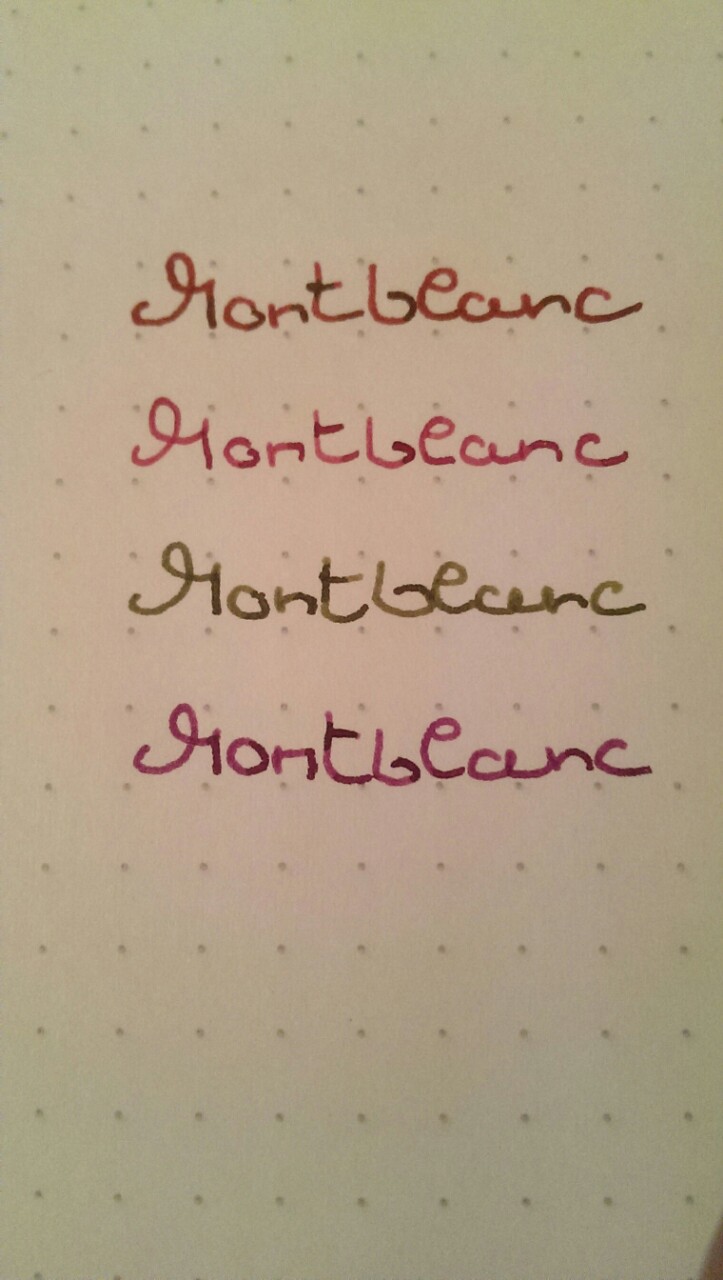 Montblanc
Montblanc
Montblanc
Montblanc